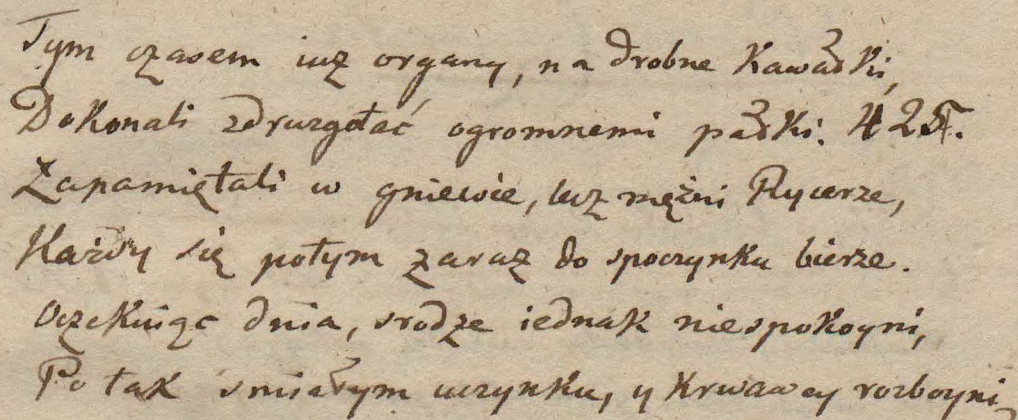 Tym czasem iuż organy, na drobne Kawałki,
Dokonali zdruzgotać ogromnemi pałki. 425.
Zapamiętali w gniewie, lecz mężni Rycerze,
Każdy się potym zaraz do spoczynku bierze.
Oczekuiąc dnia, srodze iednak niespokoyni,
Po tak śmiałym uczynku, y Krwawey rozboyni